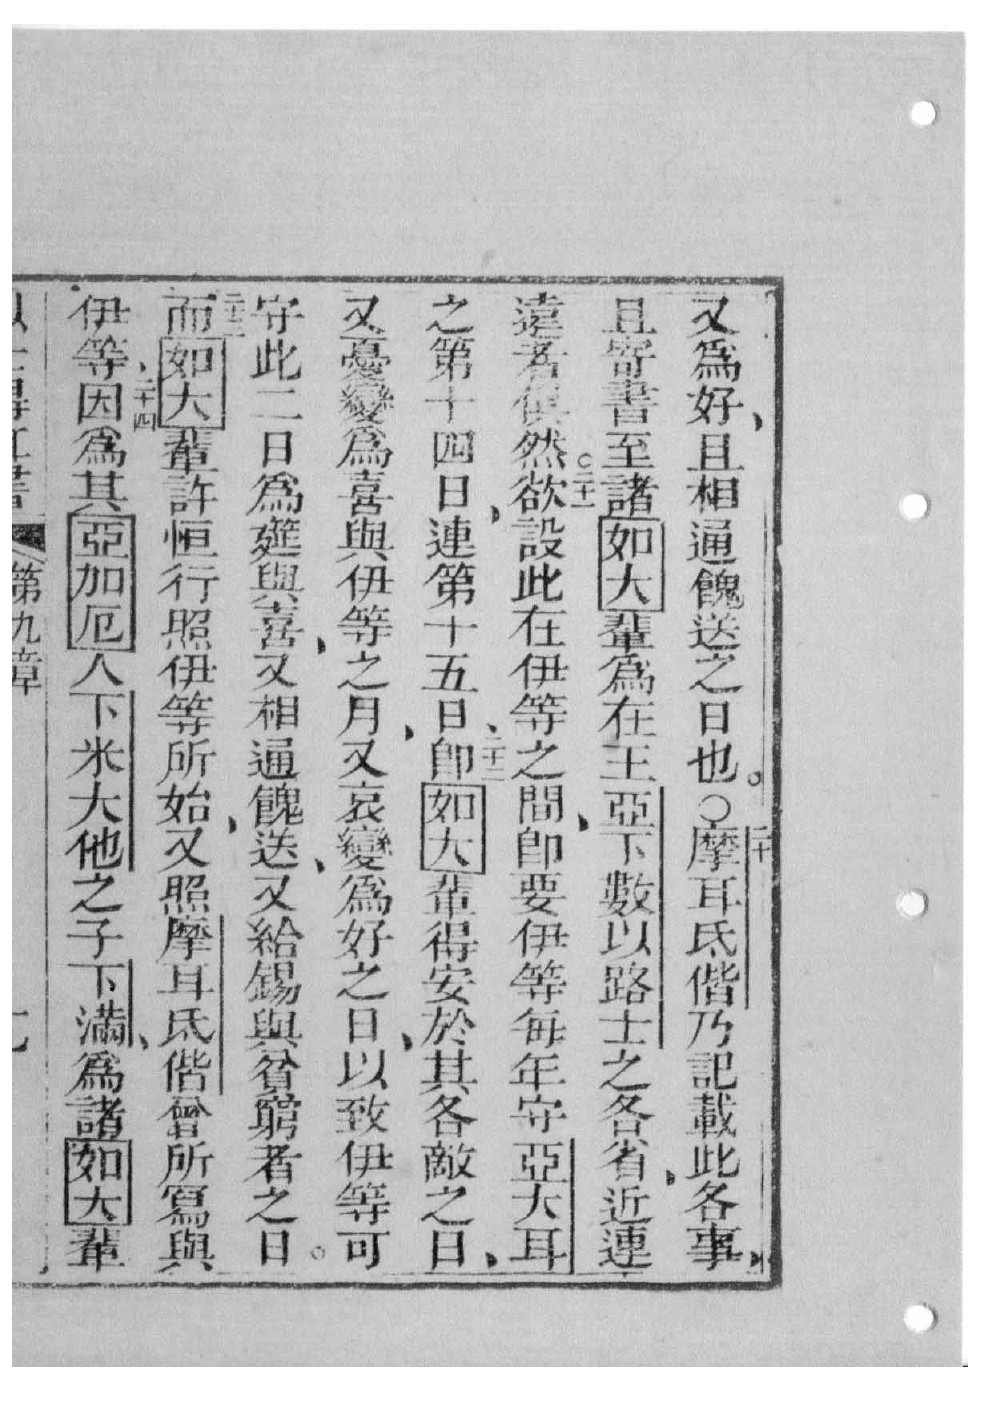 又爲好、且相通餽送之日也。○二十摩耳氐偕乃記載此各事、
且寄書至諸如大輩爲在王亞下數以路士之各省、近連
遠者俱然。二十一欲設此在伊等之間、卽要伊等每年守亞大耳
之第十四日、連第十五日、二十二卽如大輩得安於其各敵之日、
又憂變爲喜與伊等之月、又哀變爲好之日、以致伊等可
守此二日爲筵與喜、又相通餽送、又給錫與貧窮者之日。
二十三而如大輩許恒行照伊等所始、又照摩耳氐偕曾所寫與
伊等、二十四因爲其亞加厄人下米大他之子下滿、爲諸如大輩
第九章